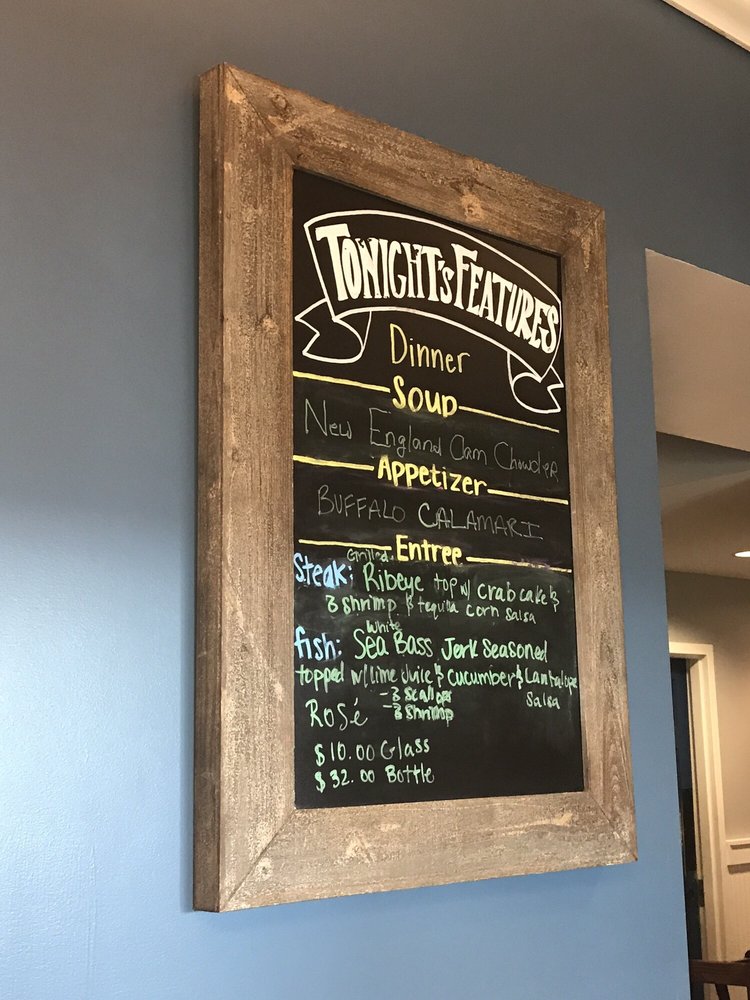 TONIGHT'S FEATURES
Dinner
Soup
New England Clam Chowder
Appetizer
BUFFALO CALAMARI
Entree
Grilled
Steak: Ribeye top w/ crab cake &
3 shrimp & tequila corn salsa
White
fish: Sea Bass Jerk Seasoned
topped w/ lime juice & cucumber & Cantalope
Salsa
-3 Scallops
-3 Shrimp
Rosé
$10.00 Glass
$32.00 Bottle